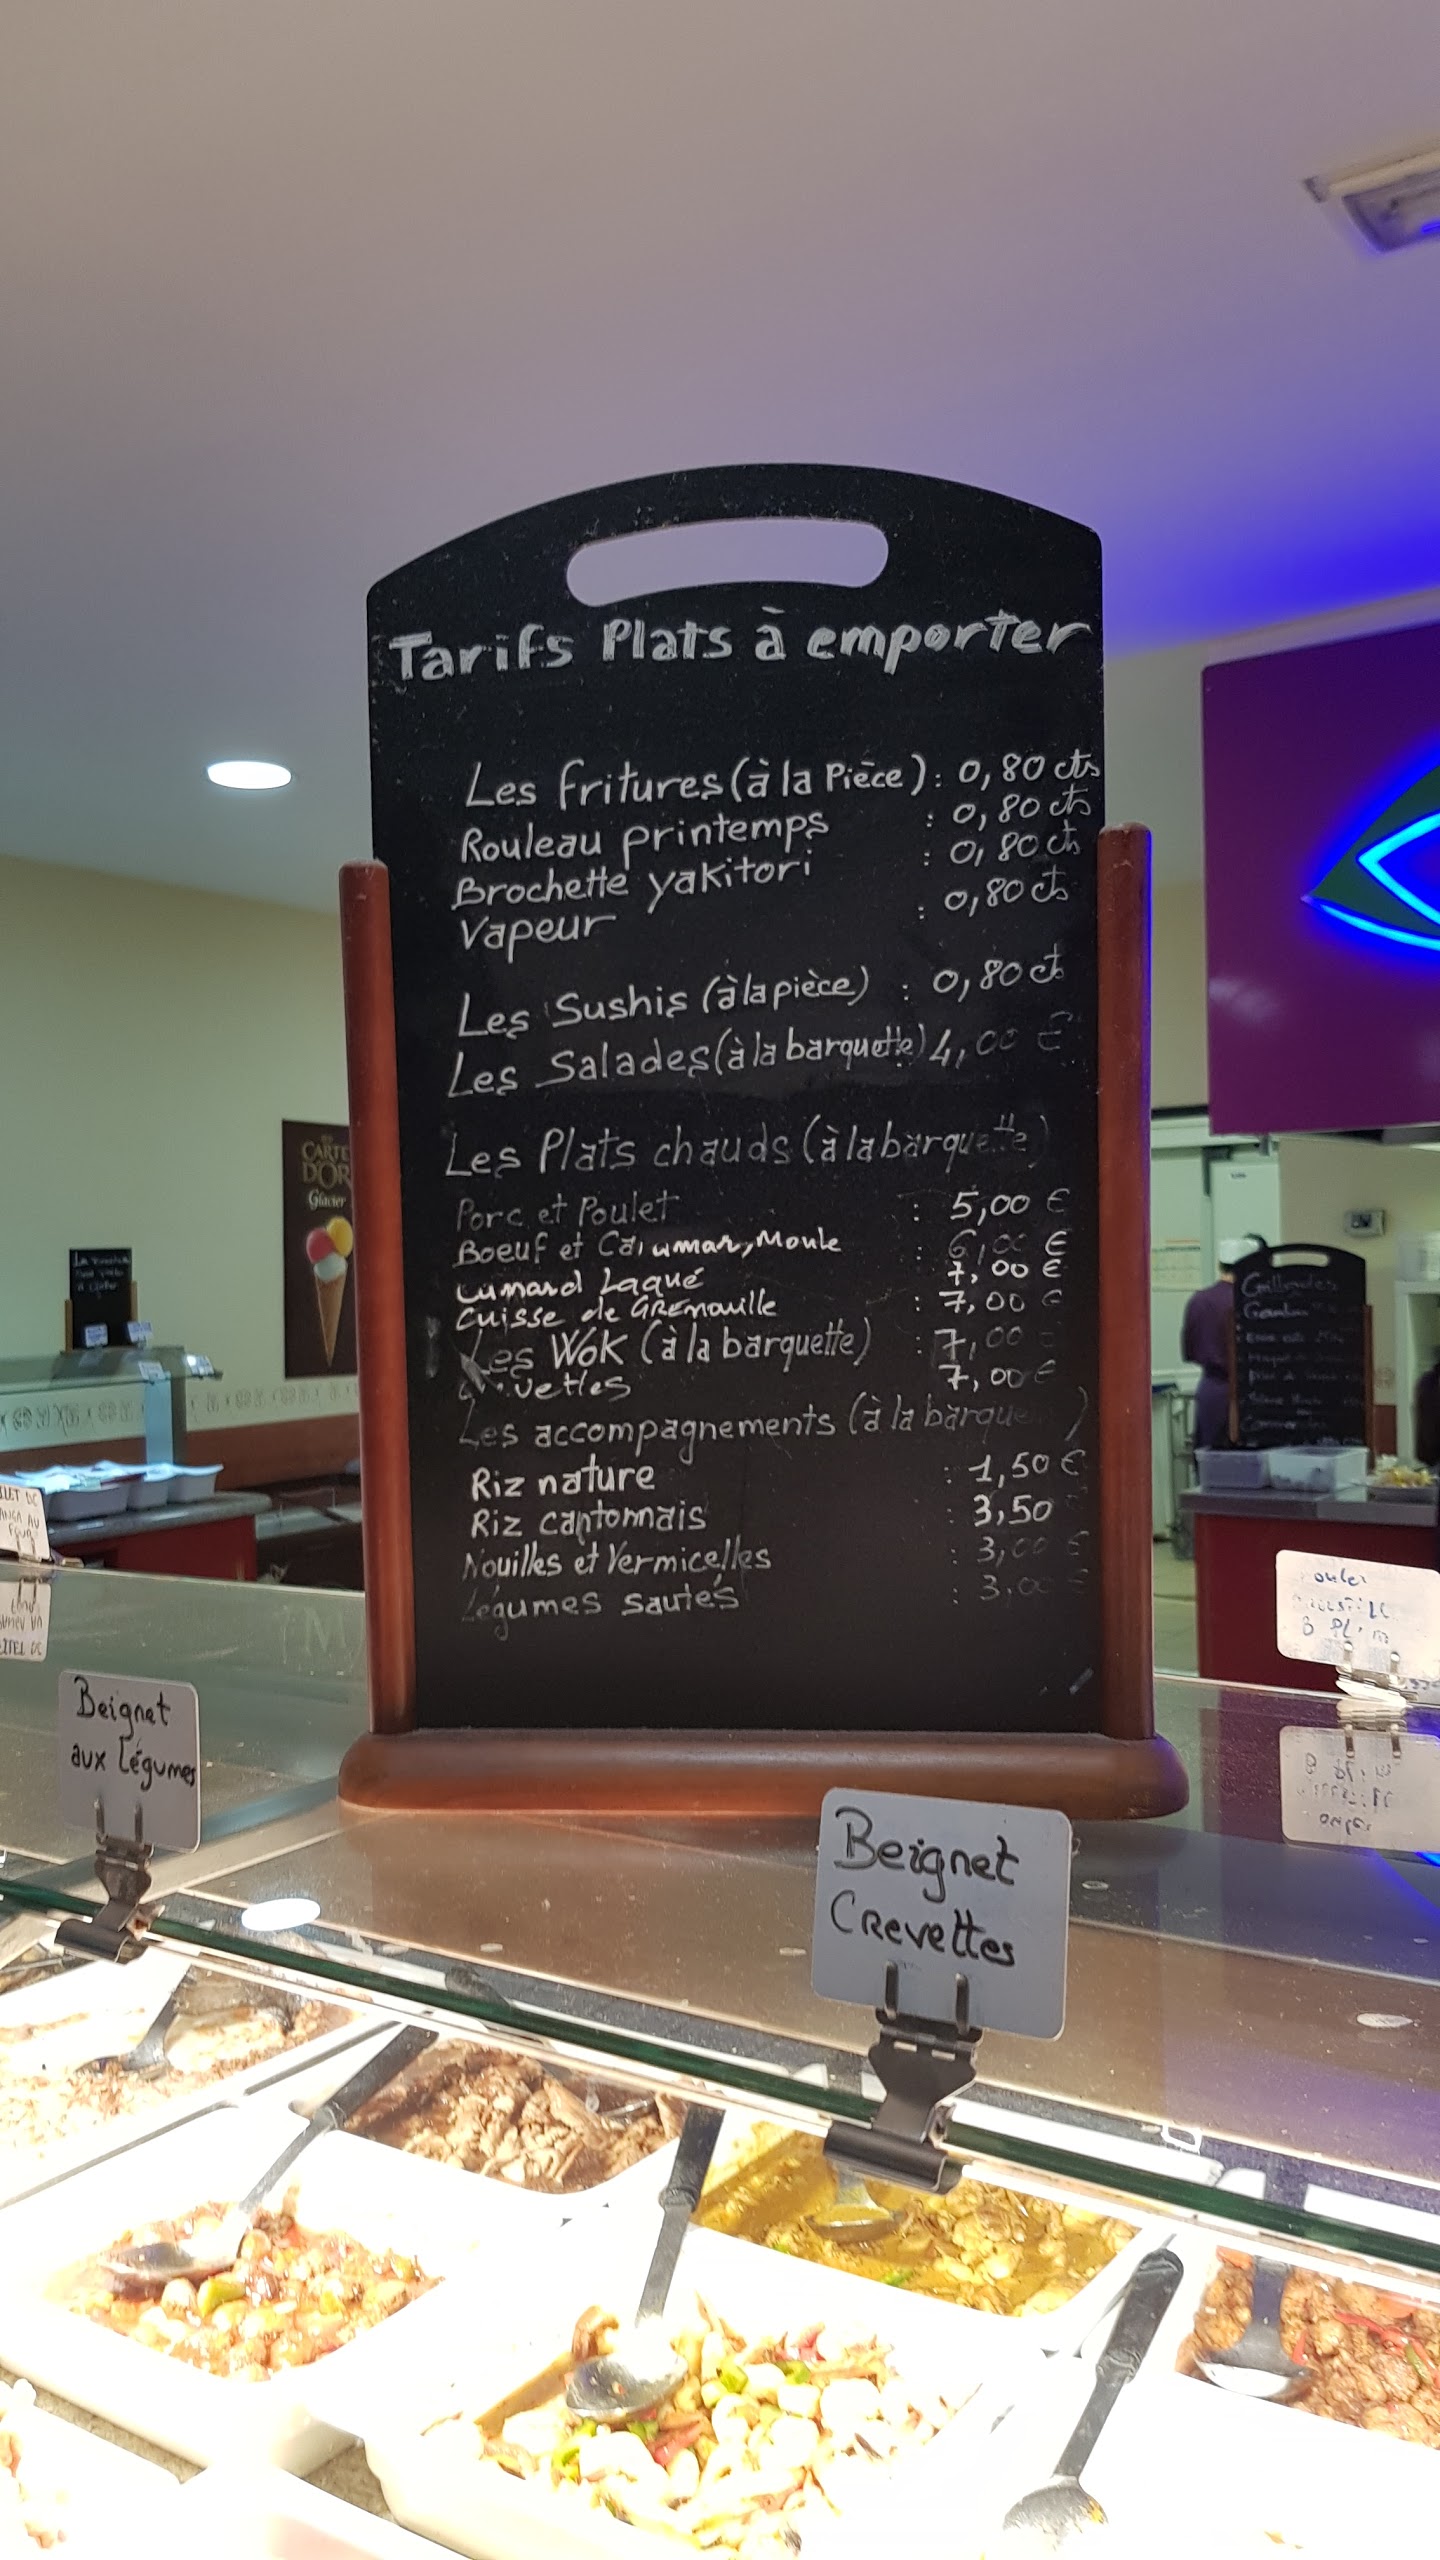 Tarifs Plats à emporter
Les fritures (à la Pièce) : 0,80 cts
Rouleau printemps : 0,80 cts
Brochette yakitori : 0,80 cts
Vapeur : 0,80 cts
Les Sushis (à la pièce) : 0,80 cts
Les Salades (à la barquette) 4,00 €
Les Plats chauds (à la barquette)
Porc et Poulet : 5,00 €
Boeuf et Calamar, Moule : 6,00 €
Laqué 7,00 €
Cuisse de GRENouille : 7,00 €
Les Wok (à la barquette) : 7,00 €
7,00 €
Les accompagnements (à la barque )
Riz nature : 1,50 €
Riz cantonnais : 3,50
Nouilles et Vermicelles : 3,00 €
Légumes sautés : 3,00 €
CARTE
D'OR
Glacier
Beignet
aux Légumes
Beignet
CRevettes